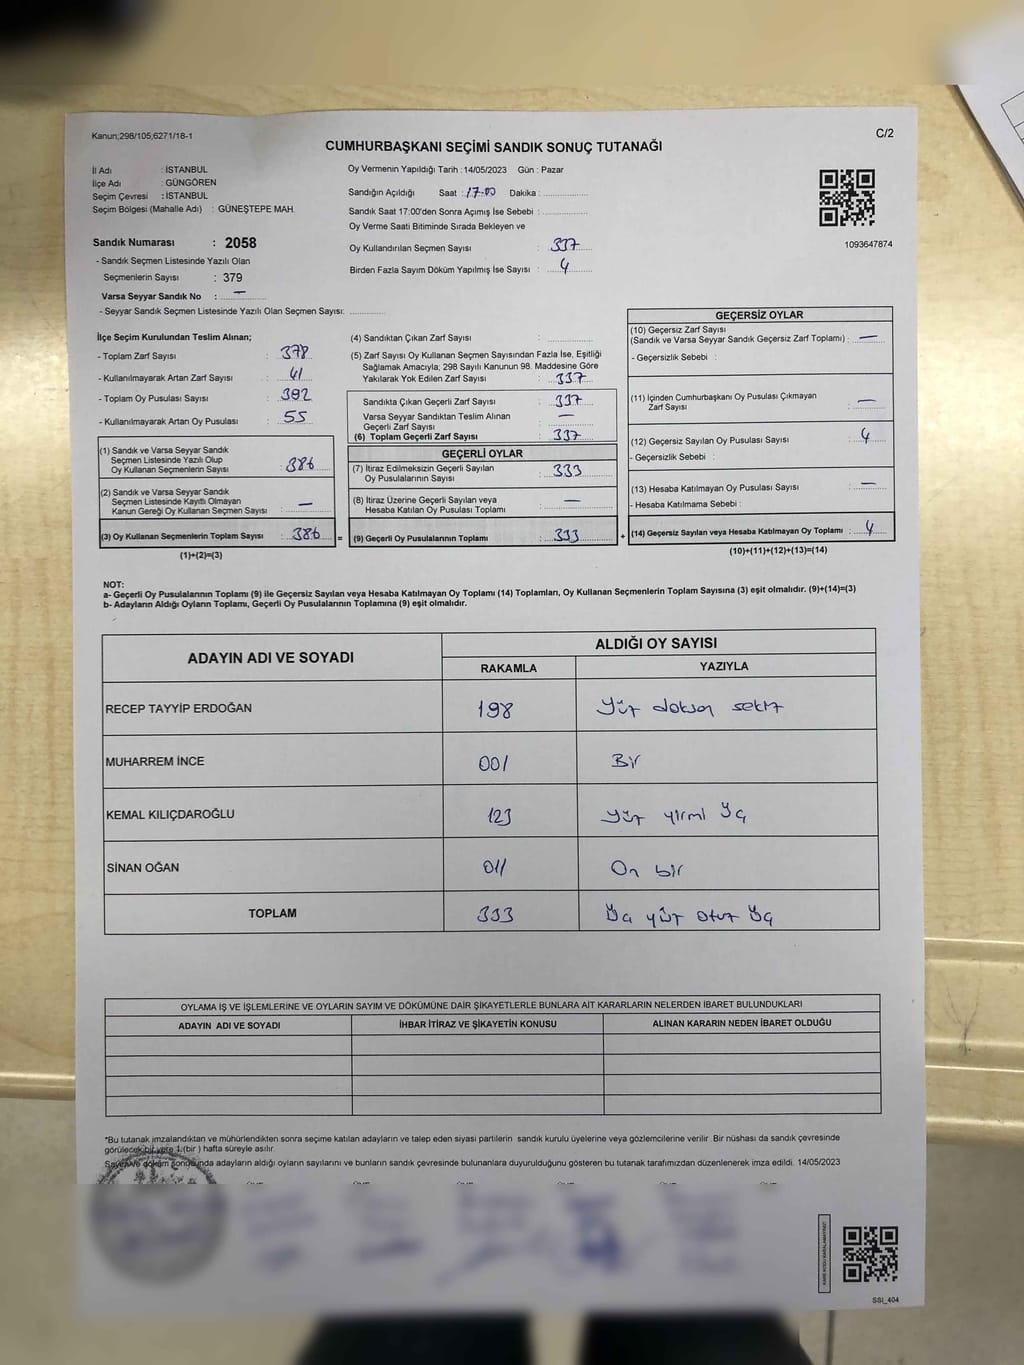 Kanun;298/105;6271/18-1
C/2
CUMHURBAŞKANI SEÇİMİ SANDIK SONUÇ TUTANAĞI
İl Adı : İSTANBUL
İlçe Adı : GÜNGÖREN
Seçim Çevresi : İSTANBUL
Seçim Bölgesi (Mahalle Adı) : GÜNEŞTEPE MAH.
Oy Vermenin Yapıldığı Tarih : 14/05/2023 Gün : Pazar
Sandığın Açıldığı Saat : 17.00 Dakika :
Sandık Saat 17:00'den Sonra Açımış İse Sebebi :
Oy Verme Saati Bitiminde Sırada Bekleyen ve
Oy Kullandırılan Seçmen Sayısı : 337
Birden Fazla Sayım Döküm Yapılmış İse Sayısı : 4
1093647874
Sandık Numarası : 2058
- Sandık Seçmen Listesinde Yazılı Olan
Seçmenlerin Sayısı : 379
Varsa Seyyar Sandık No : —
- Seyyar Sandık Seçmen Listesinde Yazılı Olan Seçmen Sayısı:
İlçe Seçim Kurulundan Teslim Alınan;
- Toplam Zarf Sayısı : 378
- Kullanılmayarak Artan Zarf Sayısı : 41
- Toplam Oy Pusulası Sayısı : 392
- Kullanılmayarak Artan Oy Pusulası : 55
(1) Sandık ve Varsa Seyyar Sandık
Seçmen Listesinde Yazılı Olup
Oy Kullanan Seçmenlerin Sayısı : 386
(2) Sandık ve Varsa Seyyar Sandık
Seçmen Listesinde Kayıtlı Olmayan
Kanun Gereği Oy Kullanan Seçmen Sayısı : —
(3) Oy Kullanan Seçmenlerin Toplam Sayısı : 386 =
(1)+(2)=(3)
(4) Sandıktan Çıkan Zarf Sayısı :
(5) Zarf Sayısı Oy Kullanan Seçmen Sayısından Fazla İse, Eşitliği
Sağlamak Amacıyla; 298 Sayılı Kanunun 98. Maddesine Göre
Yakılarak Yok Edilen Zarf Sayısı : 337
Sandıkta Çıkan Geçerli Zarf Sayısı : 337
Varsa Seyyar Sandıktan Teslim Alınan
Geçerli Zarf Sayısı : —
(6) Toplam Geçerli Zarf Sayısı : 337
GEÇERLİ OYLAR
(7) İtiraz Edilmeksizin Geçerli Sayılan
Oy Pusulalarının Sayısı : 333
(8) İtiraz Üzerine Geçerli Sayılan veya
Hesaba Katılan Oy Pusulası Toplamı : —
(9) Geçerli Oy Pusulalarının Toplamı : 333 +
GEÇERSİZ OYLAR
(10) Geçersiz Zarf Sayısı
(Sandık ve Varsa Seyyar Sandık Geçersiz Zarf Toplamı) : —
- Geçersizlik Sebebi :
(11) İçinden Cumhurbaşkanı Oy Pusulası Çıkmayan
Zarf Sayısı : —
(12) Geçersiz Sayılan Oy Pusulası Sayısı : 4
- Geçersizlik Sebebi :
(13) Hesaba Katılmayan Oy Pusulası Sayısı : —
- Hesaba Katılmama Sebebi :
(14) Geçersiz Sayılan veya Hesaba Katılmayan Oy Toplamı : 4
(10)+(11)+(12)+(13)=(14)
NOT:
a- Geçerli Oy Pusulalarının Toplamı (9) ile Geçersiz Sayılan veya Hesaba Katılmayan Oy Toplamı (14) Toplamları, Oy Kullanan Seçmenlerin Toplam Sayısına (3) eşit olmalıdır. (9)+(14)=(3)
b- Adayların Aldığı Oyların Toplamı, Geçerli Oy Pusulalarının Toplamına (9) eşit olmalıdır.
ADAYIN ADI VE SOYADI
ALDIĞI OY SAYISI
RAKAMLA YAZIYLA
RECEP TAYYİP ERDOĞAN 198 Yüz doksan sekiz
MUHARREM İNCE 001 Bir
KEMAL KILIÇDAROĞLU 123 Yüz yirmi Üç
SİNAN OĞAN 011 On bir
TOPLAM 333 Üç yüz otuz Üç
OYLAMA İŞ VE İŞLEMLERİNE VE OYLARIN SAYIM VE DÖKÜMÜNE DAİR ŞİKAYETLERLE BUNLARA AİT KARARLARIN NELERDEN İBARET BULUNDUKLARI
ADAYIN ADI VE SOYADI İHBAR İTİRAZ VE ŞİKAYETİN KONUSU ALINAN KARARIN NEDEN İBARET OLDUĞU
*Bu tutanak imzalandıktan ve mühürlendikten sonra seçime katılan adayların ve talep eden siyasi partilerin sandık kurulu üyelerine veya gözlemcilerine verilir. Bir nüshası da sandık çevresinde
görülecek bir yere 1 (bir ) hafta süreyle asılır.
Sayım ve döküm sonucunda adayların aldığı oyların sayılarını ve bunların sandık çevresinde bulunanlara duyurulduğunu gösteren bu tutanak tarafımızdan düzenlenerek imza edildi. 14/05/2023
SSI_404